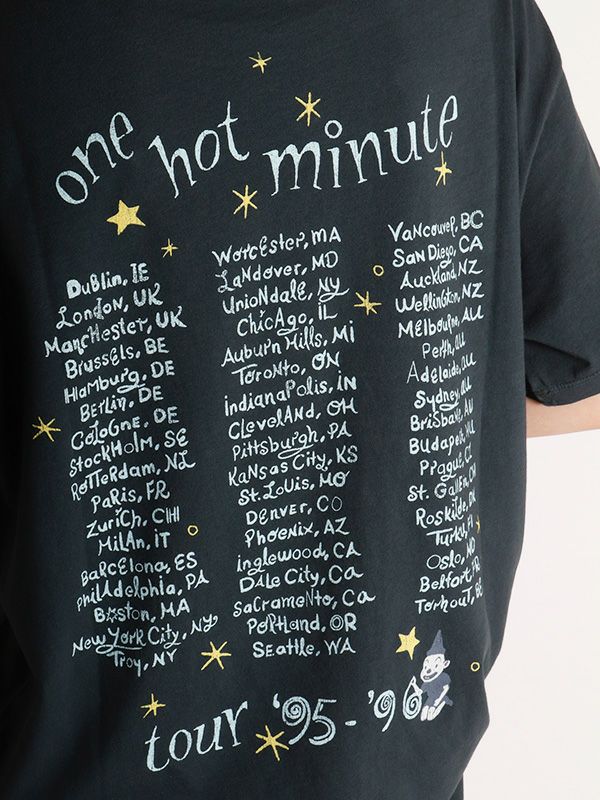 one hot minute
Dublin, IE
London, UK
Manchester, UK
Brussels, BE
Hamburg, DE
Berlin, DE
Cologne, DE
Stockholm, SE
Rotterdam, NL
Paris, FR
Zurich, CH
Milan, IT
Barcelona, ES
Philadelphia, PA
Boston, MA
New York City, NY
Troy, NY
Worcester, MA
Landover, MD
Uniondale, NY
Chicago, IL
Auburn Hills, MI
Toronto, ON
Indianapolis, IN
Cleveland, OH
Pittsburgh, PA
Kansas City, KS
St. Louis, MO
Denver, CO
Phoenix, AZ
Inglewood, CA
Dale City, Ca
Sacramento, Ca
Portland, OR
Seattle, WA
Vancouver, BC
San Diego, CA
Auckland, NZ
Wellington, NZ
Melbourne, AU
Perth, AU
Adelaide, AU
Sydney, AU
Brisbane, AU
Budapest,
Prague,
St. Gallen,
Roskilde,
Turku,
Oslo,
Belfort,
Torhout,
tour '95-'96